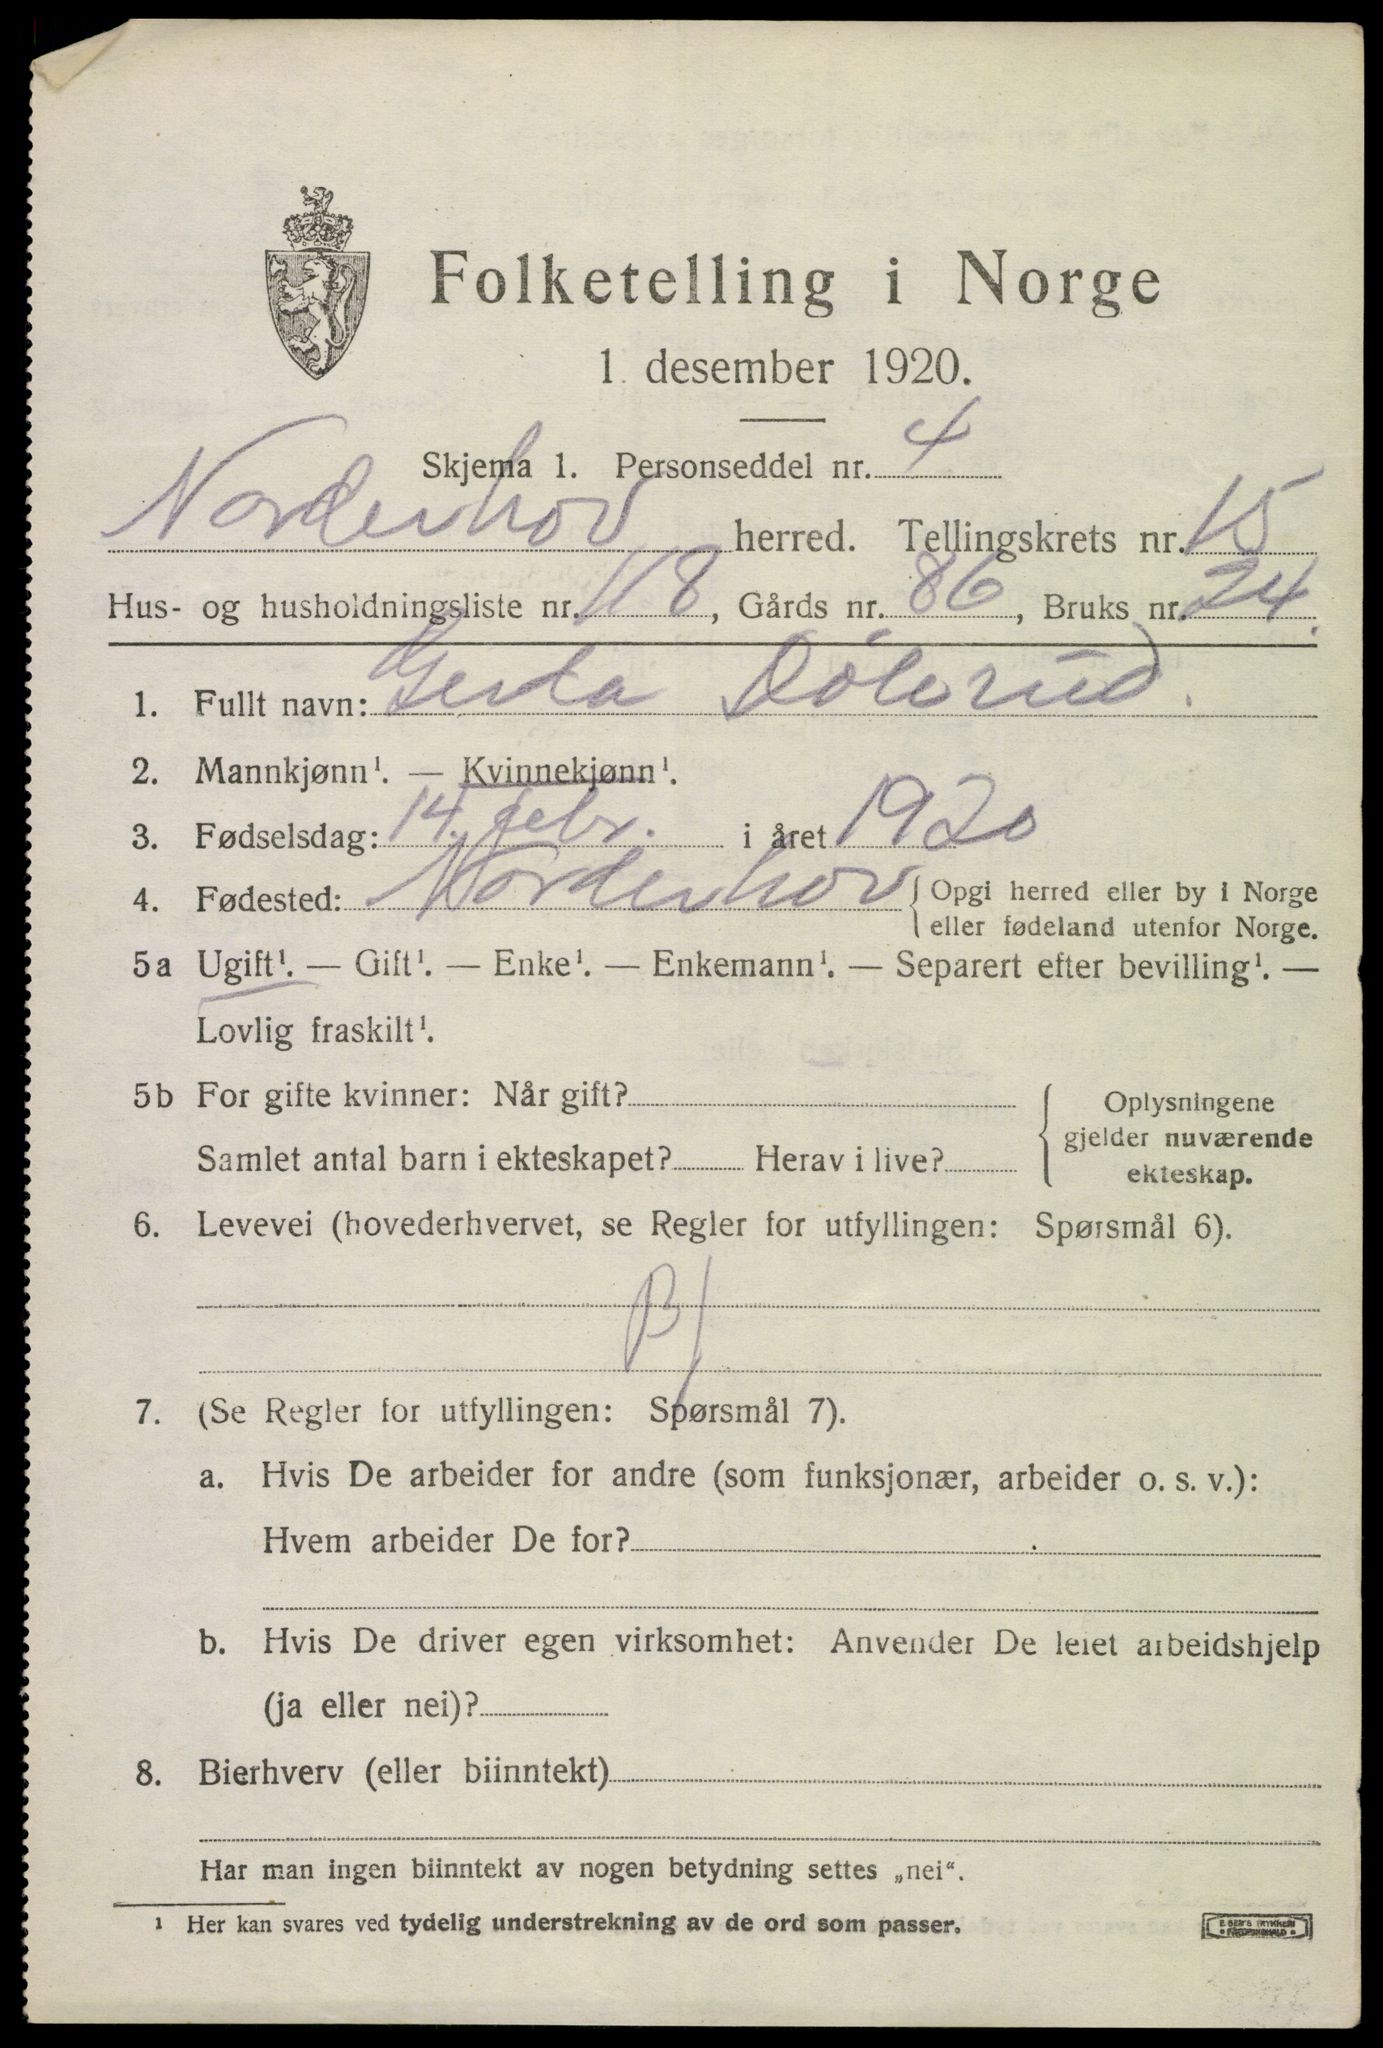 Folketelling i Norge
1. desember 1920.
Skjema 1. Personseddel nr. 4
Norderhov herred. Tellingskrets nr. 15
Hus- og husholdningsliste nr. 118, Gårds nr. 86, Bruks nr. 24.
1. Fullt navn: Gerda Dölerud.
2. Mannkjønn¹. — Kvinnekjønn¹.
3. Fødselsdag: 14. febr. i året 1920
4. Fødested: Norderhov { Opgi herred eller by i Norge
eller fødeland utenfor Norge.
5a Ugift¹. — Gift¹. — Enke¹. — Enkemann¹. — Separert efter bevilling¹. —
Lovlig fraskilt¹.
5b For gifte kvinner: Når gift?
Samlet antal barn i ekteskapet? Herav i live?
{ Oplysningene
gjelder nuværende
ekteskap.
6. Levevei (hovederhvervet, se Regler for utfyllingen: Spørsmål 6).
B/
7. (Se Regler for utfyllingen: Spørsmål 7).
a. Hvis De arbeider for andre (som funksjonær, arbeider o. s. v.):
Hvem arbeider De for?
b. Hvis De driver egen virksomhet: Anvender De leiet arbeidshjelp
(ja eller nei)?
8. Bierhverv (eller biinntekt)
Har man ingen biinntekt av nogen betydning settes „nei“.
¹ Her kan svares ved tydelig understrekning av de ord som passer.
FREDRIKSHALD